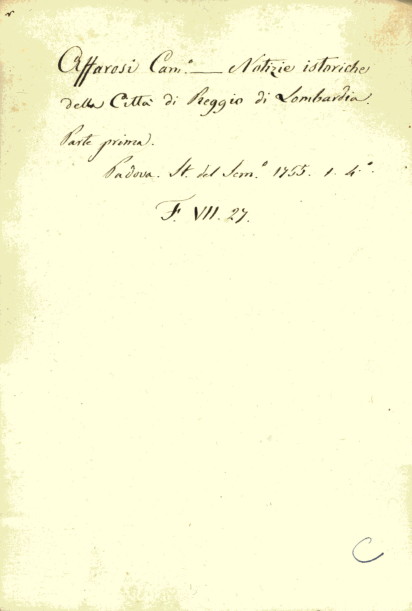 Affarosi Cam.º — Notizie istoriche
della Città di Reggio di Lombardia.
Parte prima.
Padova. St. del Sem.º 1755. 1. 4.º
F. VII. 27.
C